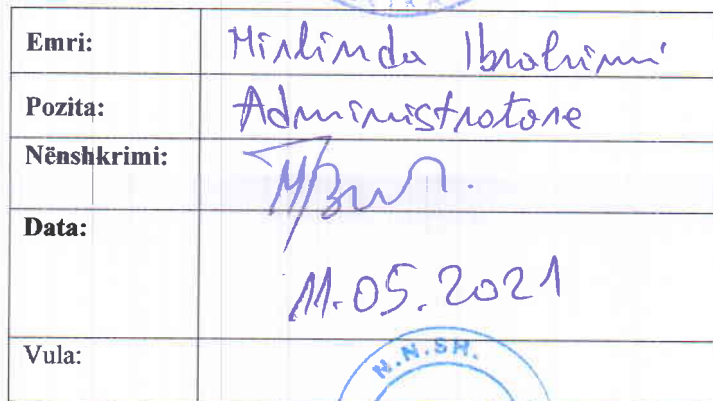 Emri: Mirlinda Ibrahimi
Pozita: Administratore
Nënshkrimi:
Data: 11.05.2021
Vula: N.N.SH.